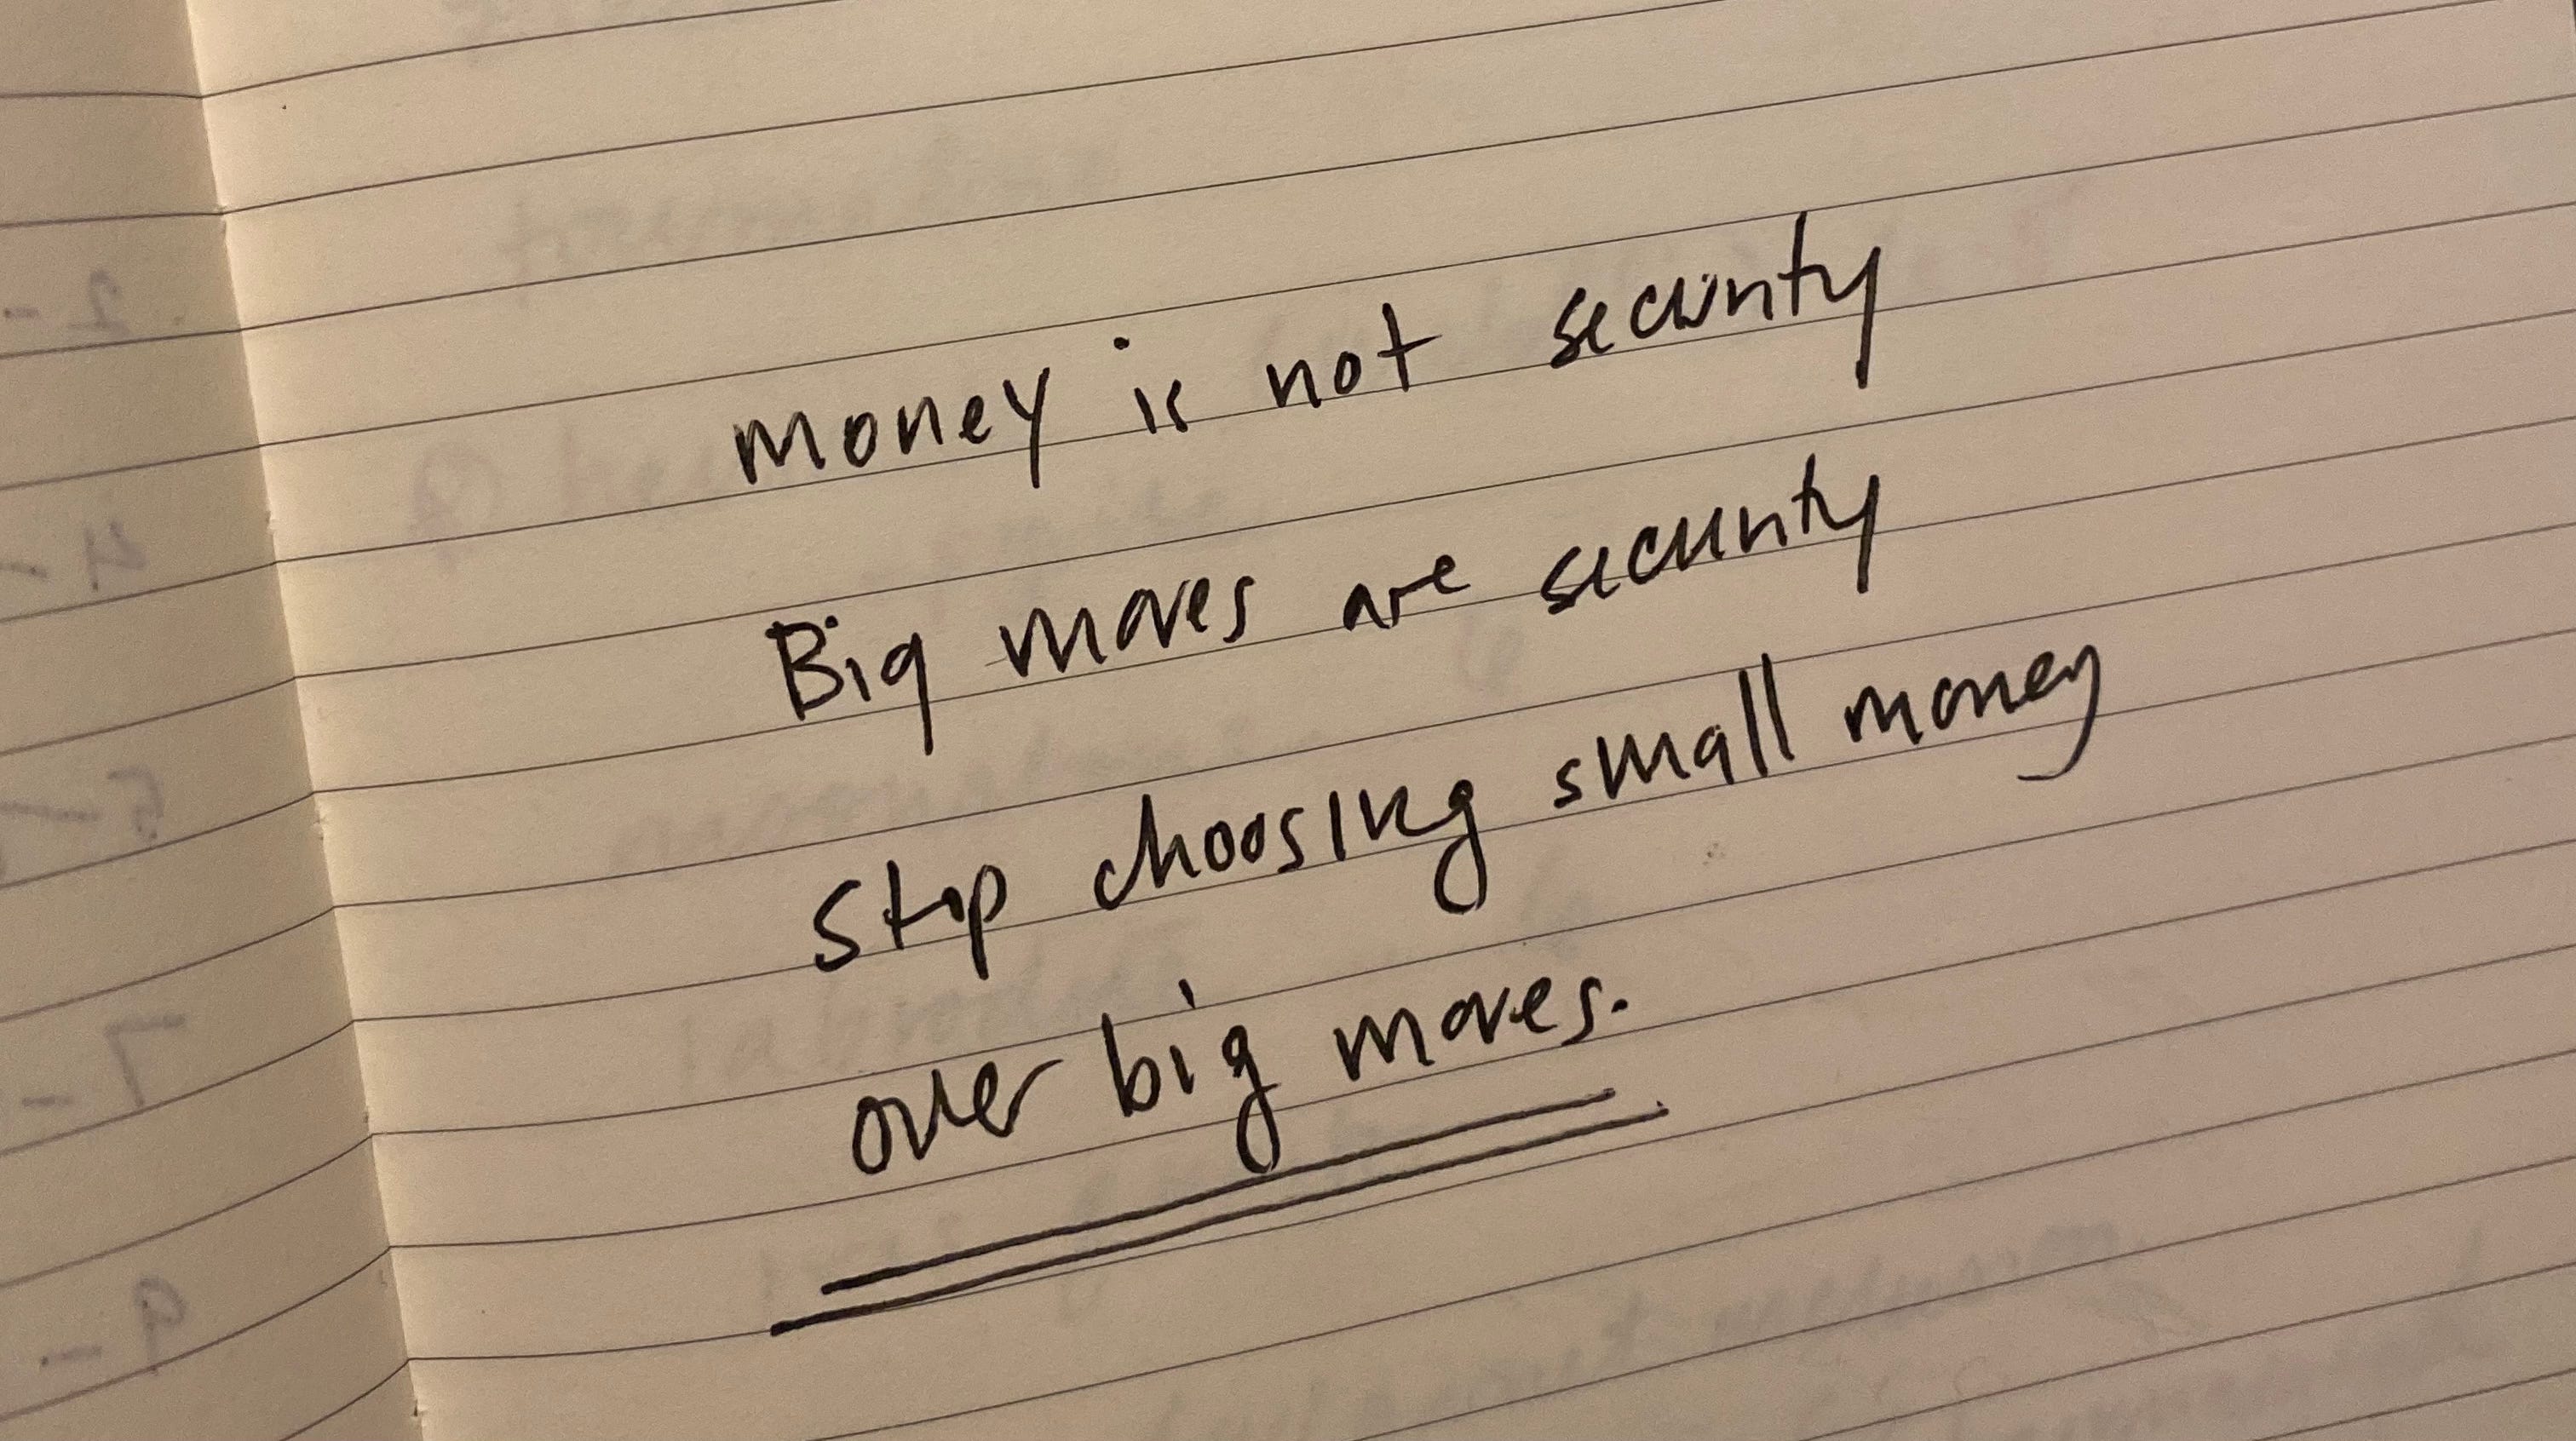 money is not security
Big moves are security
Stop choosing small money
over big moves.
2-
4-
5-
7-
9-